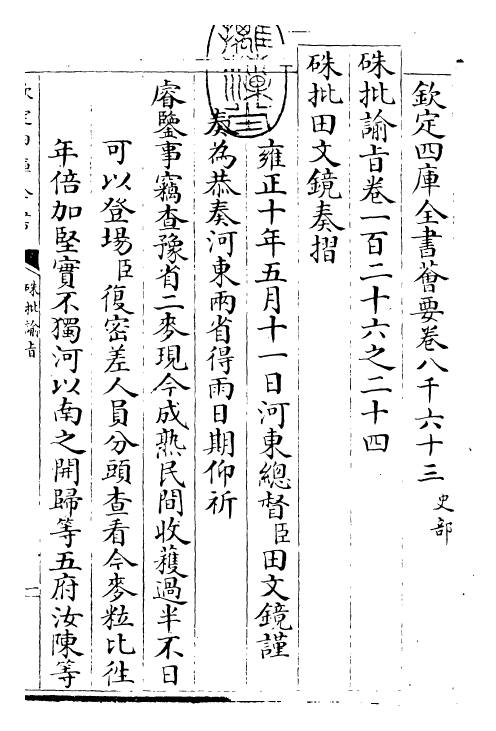 欽定四庫全書薈要卷八千六十三 史部
硃批諭旨卷一百二十六之二十四
硃批田文鏡奏摺
雍正十年五月十一日河東總督臣田文鏡謹
奏為恭奏河東兩省得雨日期仰祈
睿鑒事竊查豫省二麥現今成熟民間收穫過半不日
可以登場臣復密差人員分頭查看今麥粒比往
年倍加堅實不獨河以南之開歸等五府汝陳等
硃批諭旨